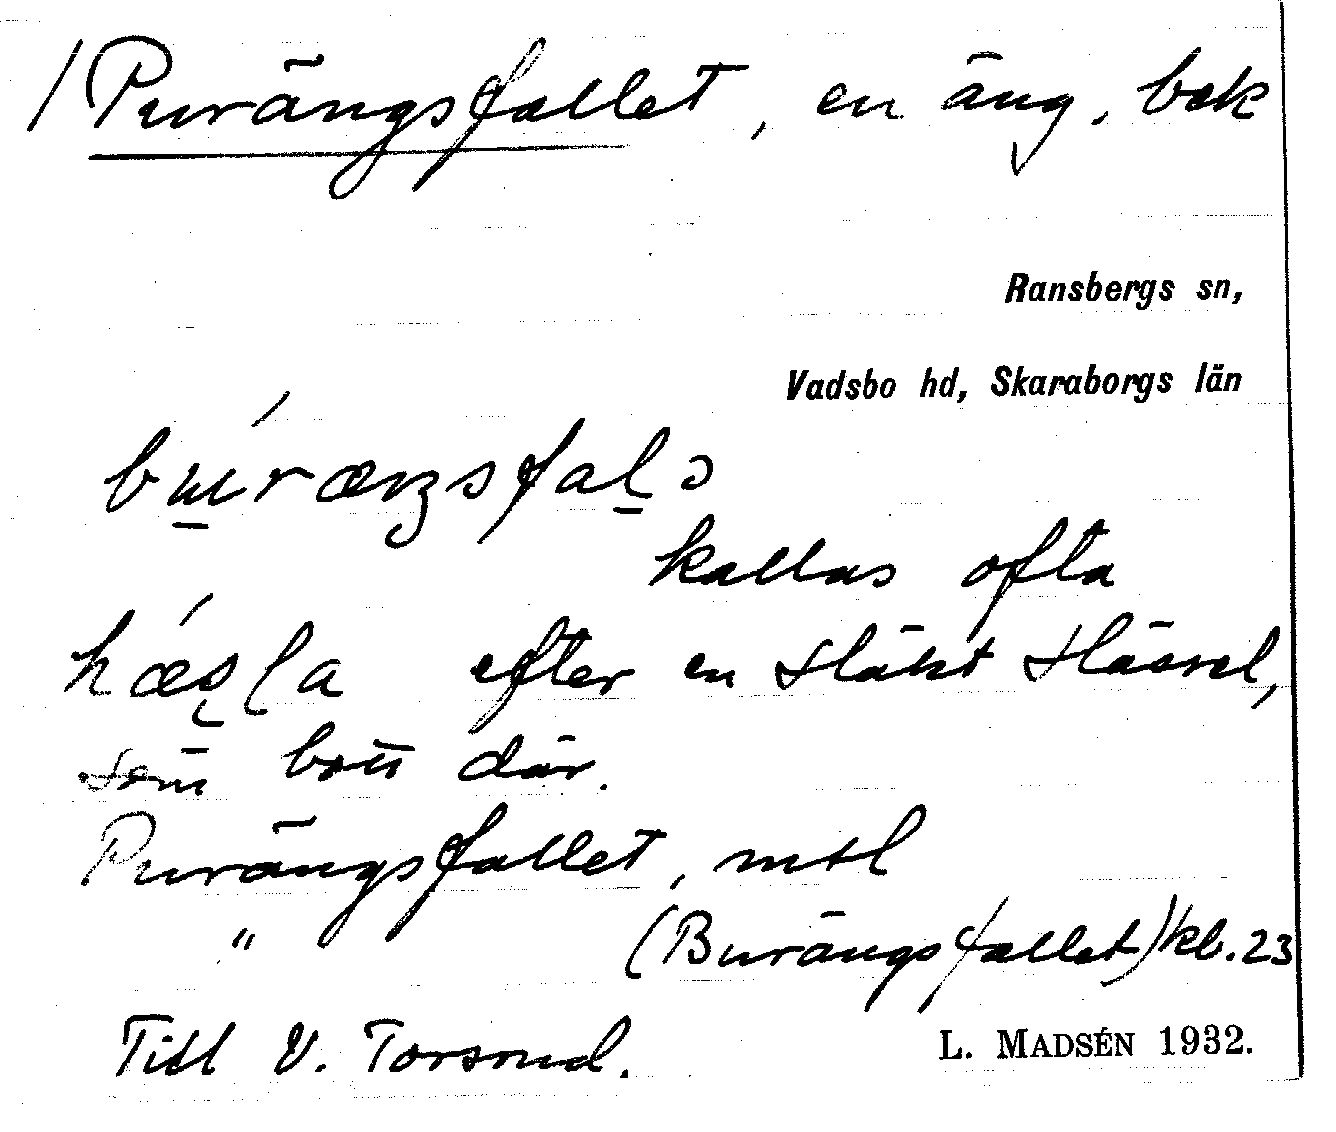 /Purängsfallet, en äng, bok
Ransbergs sn,
Vadsbo hd, Skaraborgs län
kallas ofta
efter en släkt Hässel,
som bott där.
Purängsfallet, mtl
" (Burängsfallet) kb. 23
Till V. Torsrud.
L. MADSÉN 1932.